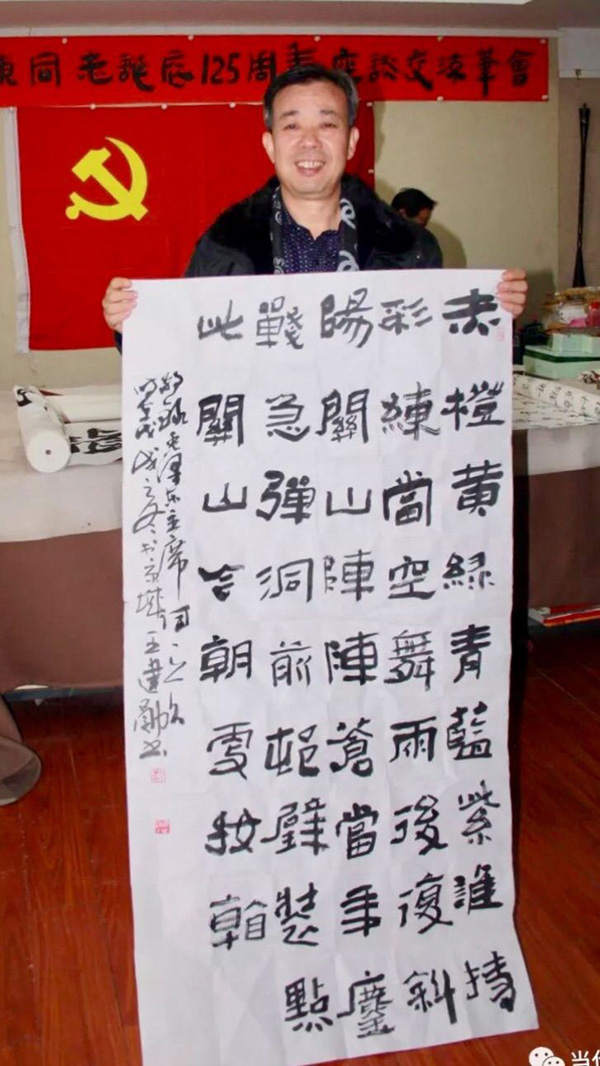 東同志誕辰125周年座談交流筆會
赤橙黄綠青藍紫誰持
彩練當空舞雨後復斜
陽關山陣陣蒼當年鏖
戰急彈洞前邨壁裝點
此關山今朝更好看
敬録毛澤東主席詞一
戊戌之冬王建勛书
当